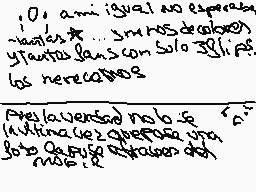 ¡O! a mi igual no esperaba
tantas * ... 3 menos de colores
y tantos fans con solo 3 flips.
los merecemos
pues la verdad no lo se
la ultima vez que puse una
foto la puse